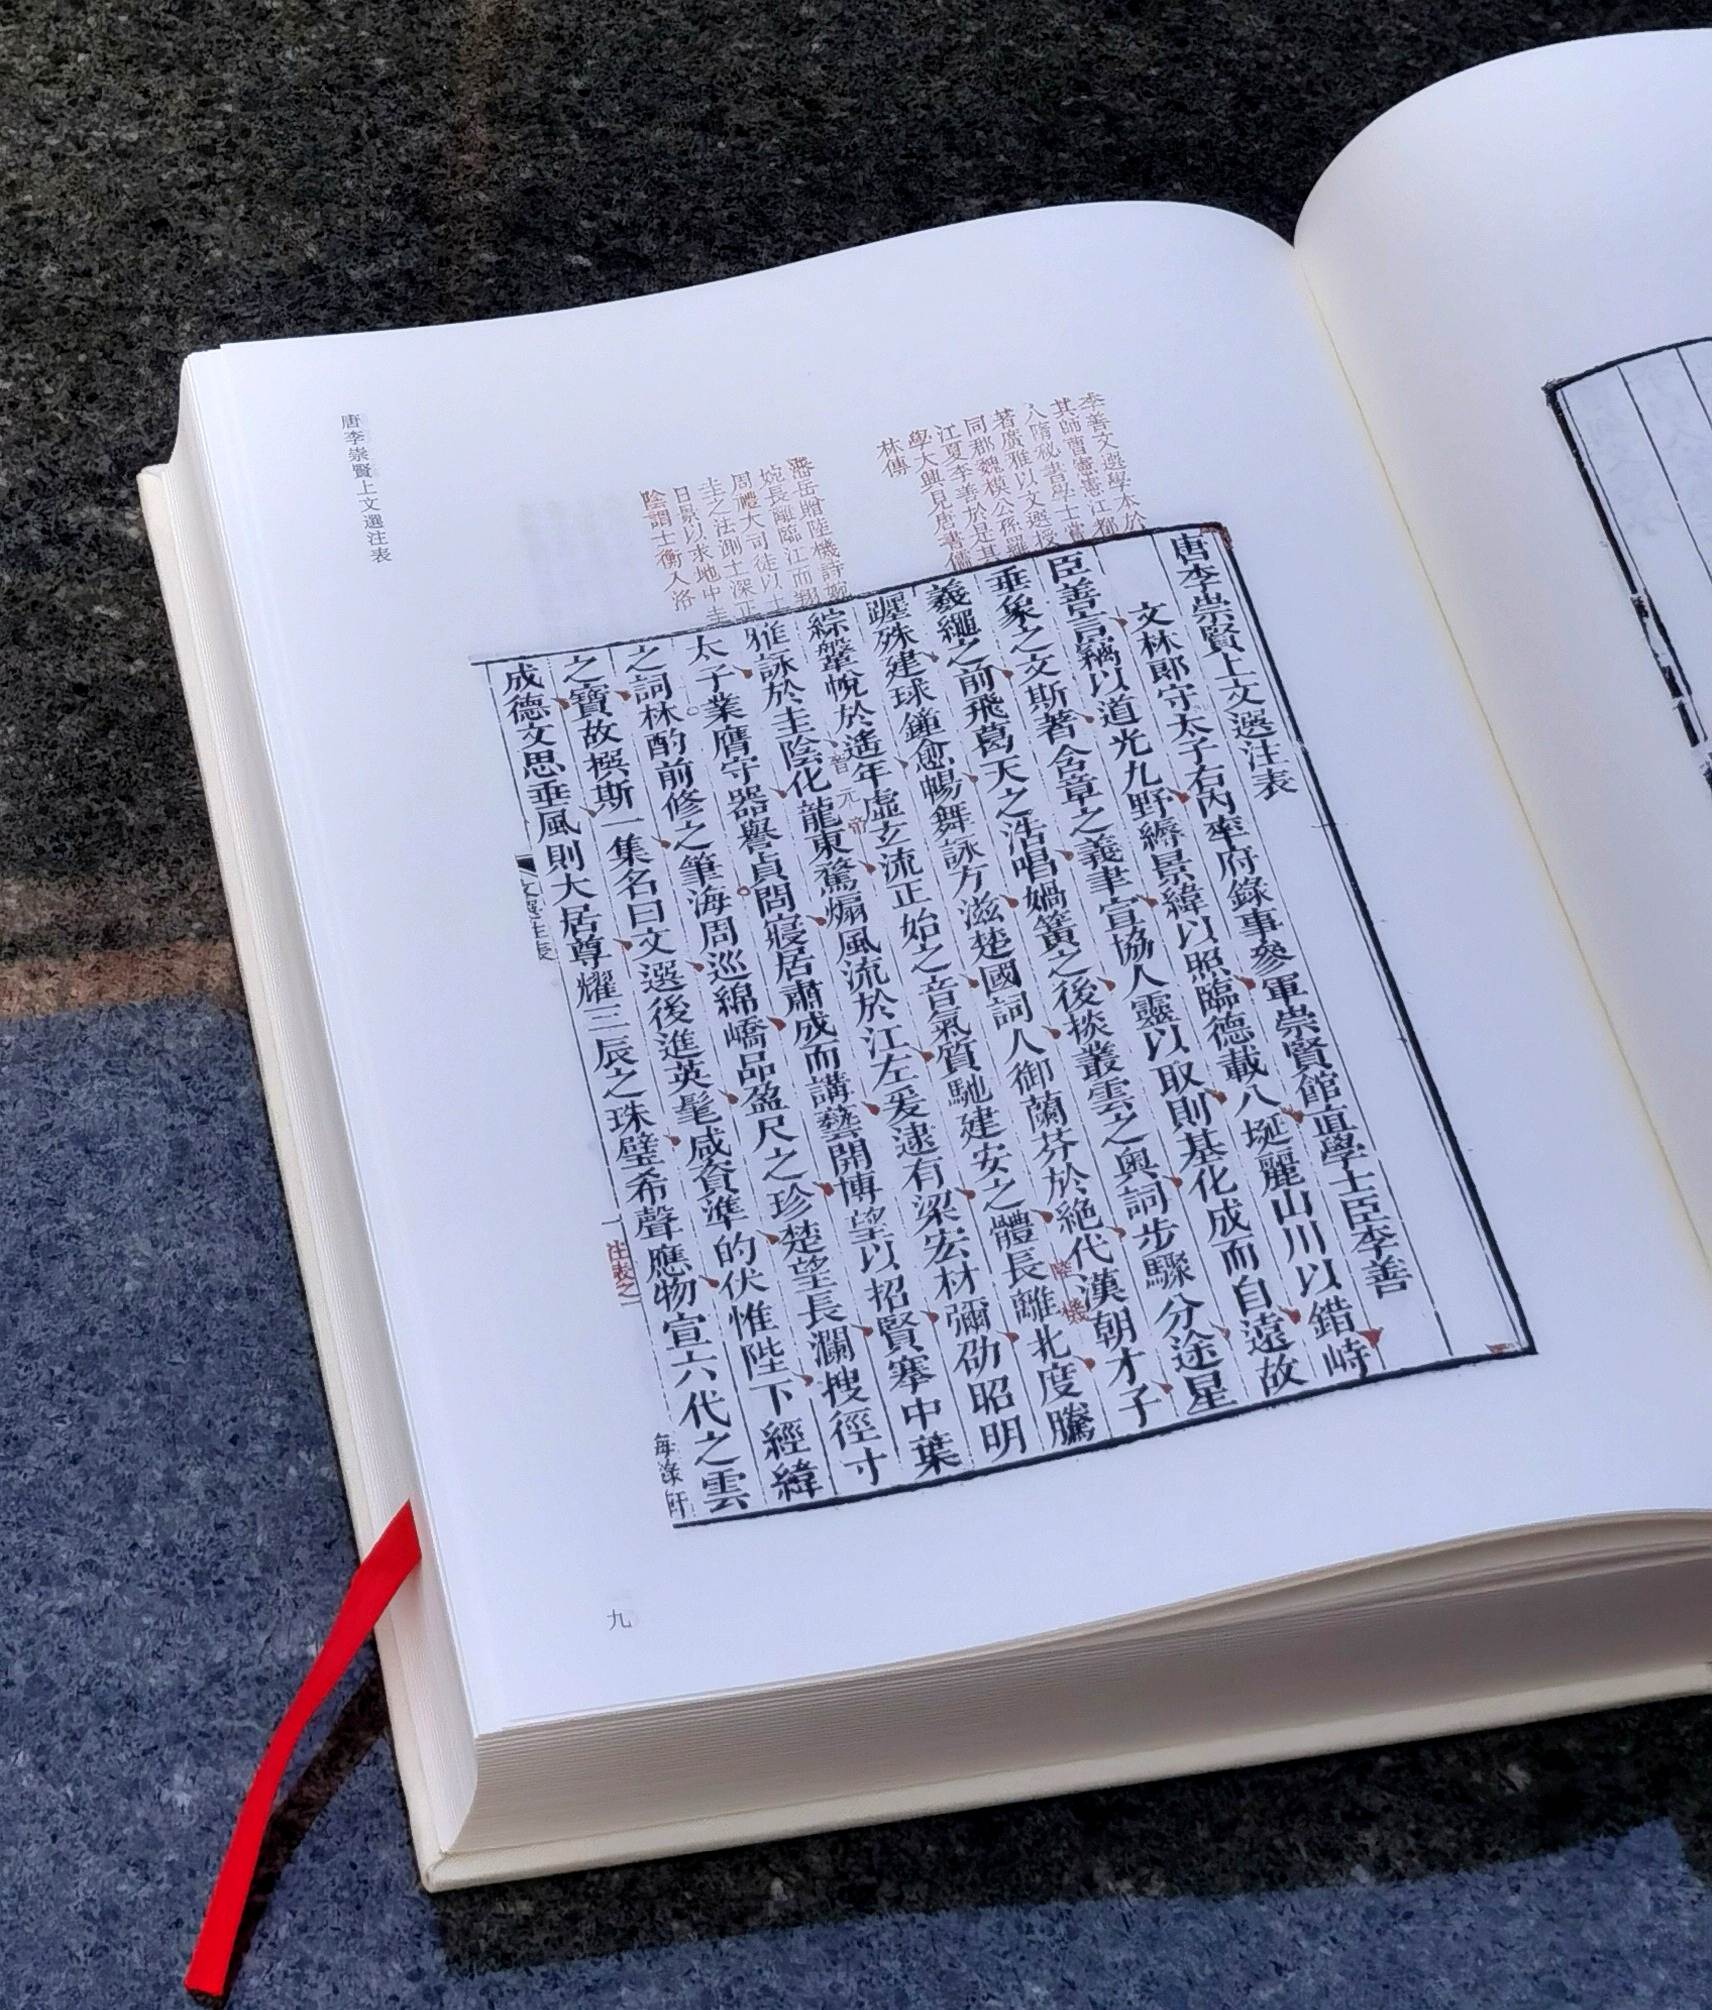 唐李崇賢上文選注表
李善文選學本於
其師曹憲憲江都
人隋秘書學士嘗
著廣雅以文選授
同郡魏模公孫羅
江夏李善於是其
學大興見唐書儒
林傳
潘岳贈陸機詩婉
婉長離臨江而翔
周禮大司徒以土
圭之法測土深正
日景以求地中圭
陰謂士衡入洛
唐李崇賢上文選注表
文林郎守太子右內率府錄事參軍崇賢館直學士臣李善
臣善言竊以道光九野縟景緯以照臨德載八埏麗山川以錯峙
垂象之文斯著含章之義聿宣協人靈以取則基化成而自遠故
羲繩之前飛葛天之浩唱媧簧之後掞叢雲之奧詞步驟分途星
躔殊建球鐘愈暢舞詠方滋楚國詞人御蘭芬於絕代漢朝才子
綜鞶帨於遙年虛玄流正始之音氣質馳建安之體長離北度騰
陸機
雅詠於圭陰化龍東騖煽風流於江左爰逮有梁宏材彌劭昭明
晉元帝
太子業膺守器譽貞問寢居肅成而講藝開博望以招賢搴中葉
之詞林酌前修之筆海周巡綿嶠品盈尺之珍楚望長瀾搜徑寸
之寶故撰斯一集名曰文選後進英髦咸資準的伏惟陛下經緯
成德文思垂風則大居尊耀三辰之珠璧希聲應物宣六代之雲
文選注表
一
注表之一
海錄軒
九